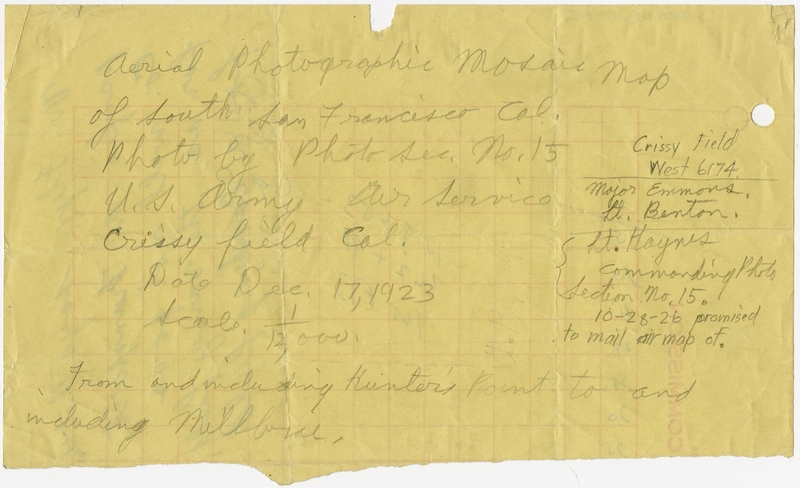 Aerial Photographic Mosaic Map
of South San Francisco Cal.
Photo by Photo Sec. No. 15
U.S. Army Air Service
Crissy field Cal.
Date Dec. 17, 1923
Scale. 1/12,000
From and including Hunter's Point to and
including Millbrae.
Crissy Field
West 6174.
Major Emmons.
Lt. Benton.
Lt. Haynes
Commanding Photo
Section No. 15.
10-28-26 promised
to mail air map of.
COMMIS